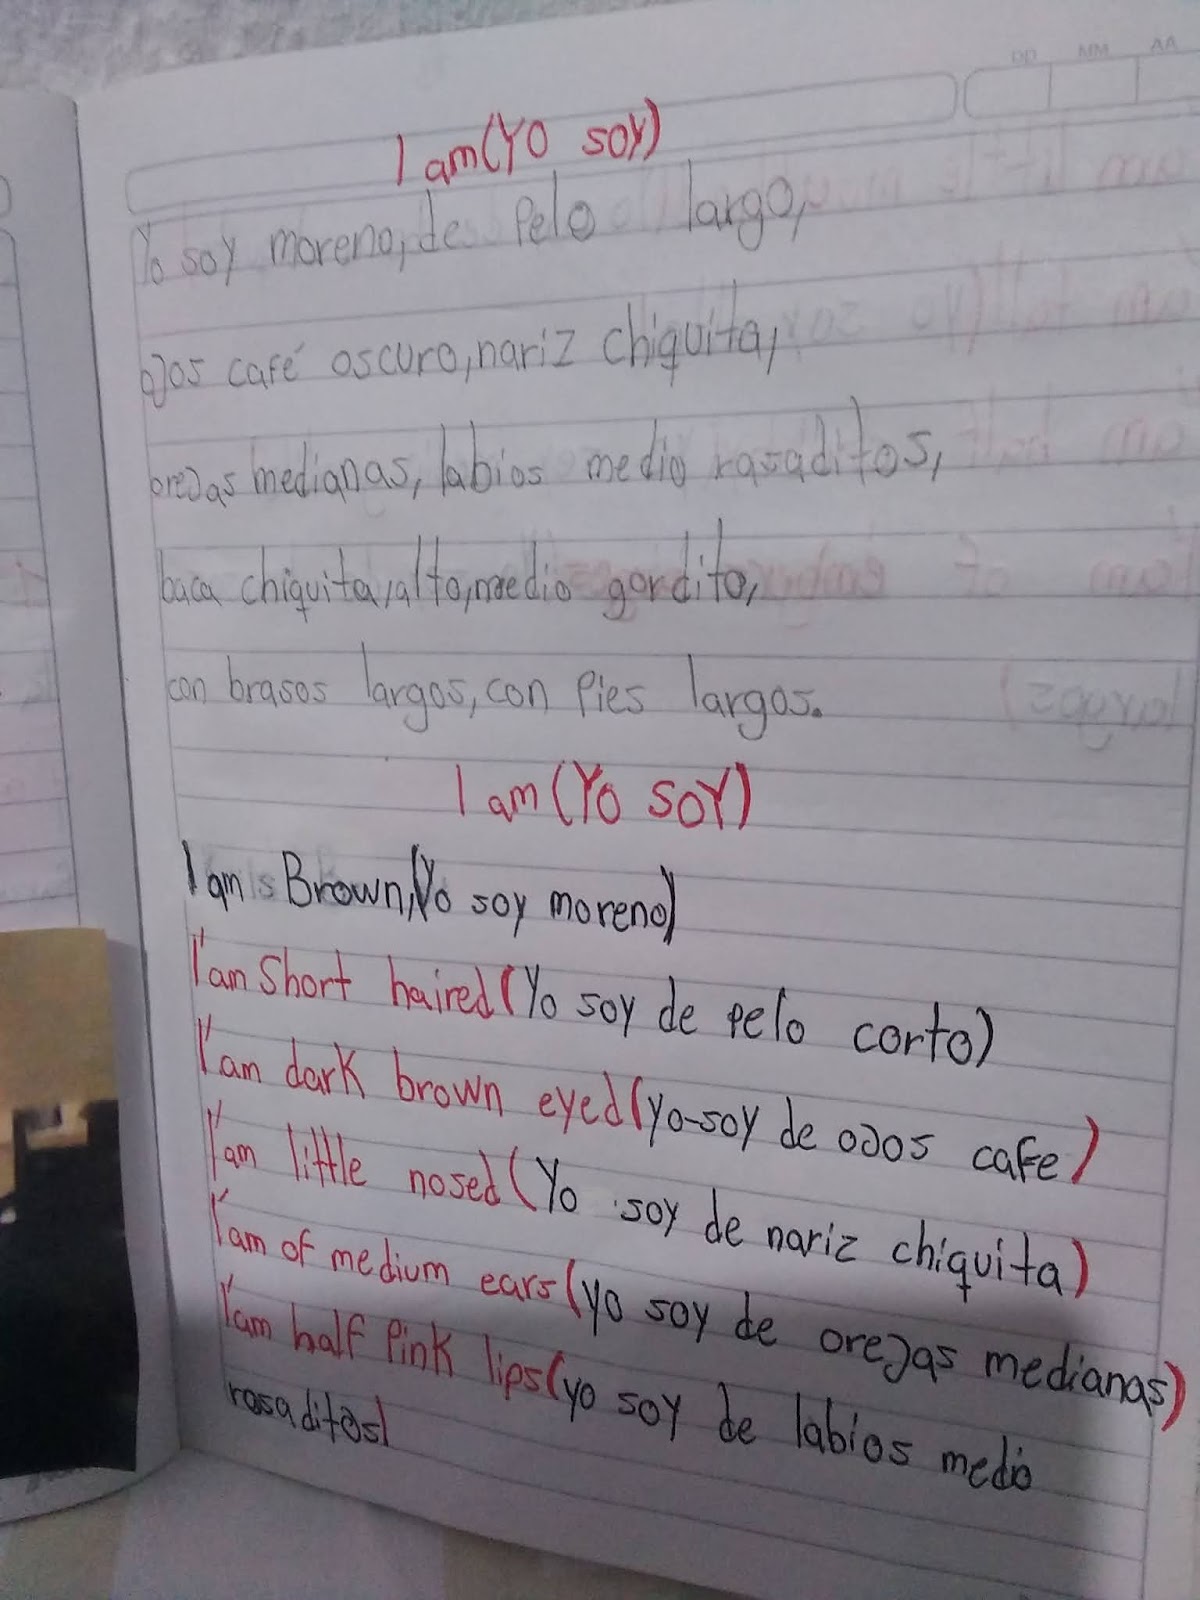 DD MM AA
I am (YO SOY)
Yo soy moreno, de pelo largo,
ojos café oscuro, nariz chiquita,
orejas medianas, labios medio rasaditos,
baca chiquita, alto, medio gordito,
con brasos largos, con pies largos.
I am (YO SOY)
I am is Brown, (Yo soy moreno)
I'am Short haired (Yo soy de pelo corto)
I'am dark brown eyed (yo-soy de ojos cafe)
I'am little nosed (Yo soy de nariz chiquita)
I'am of medium ears (yo soy de orejas medianas)
I'am half pink lips (yo soy de labios medio
rosaditos)